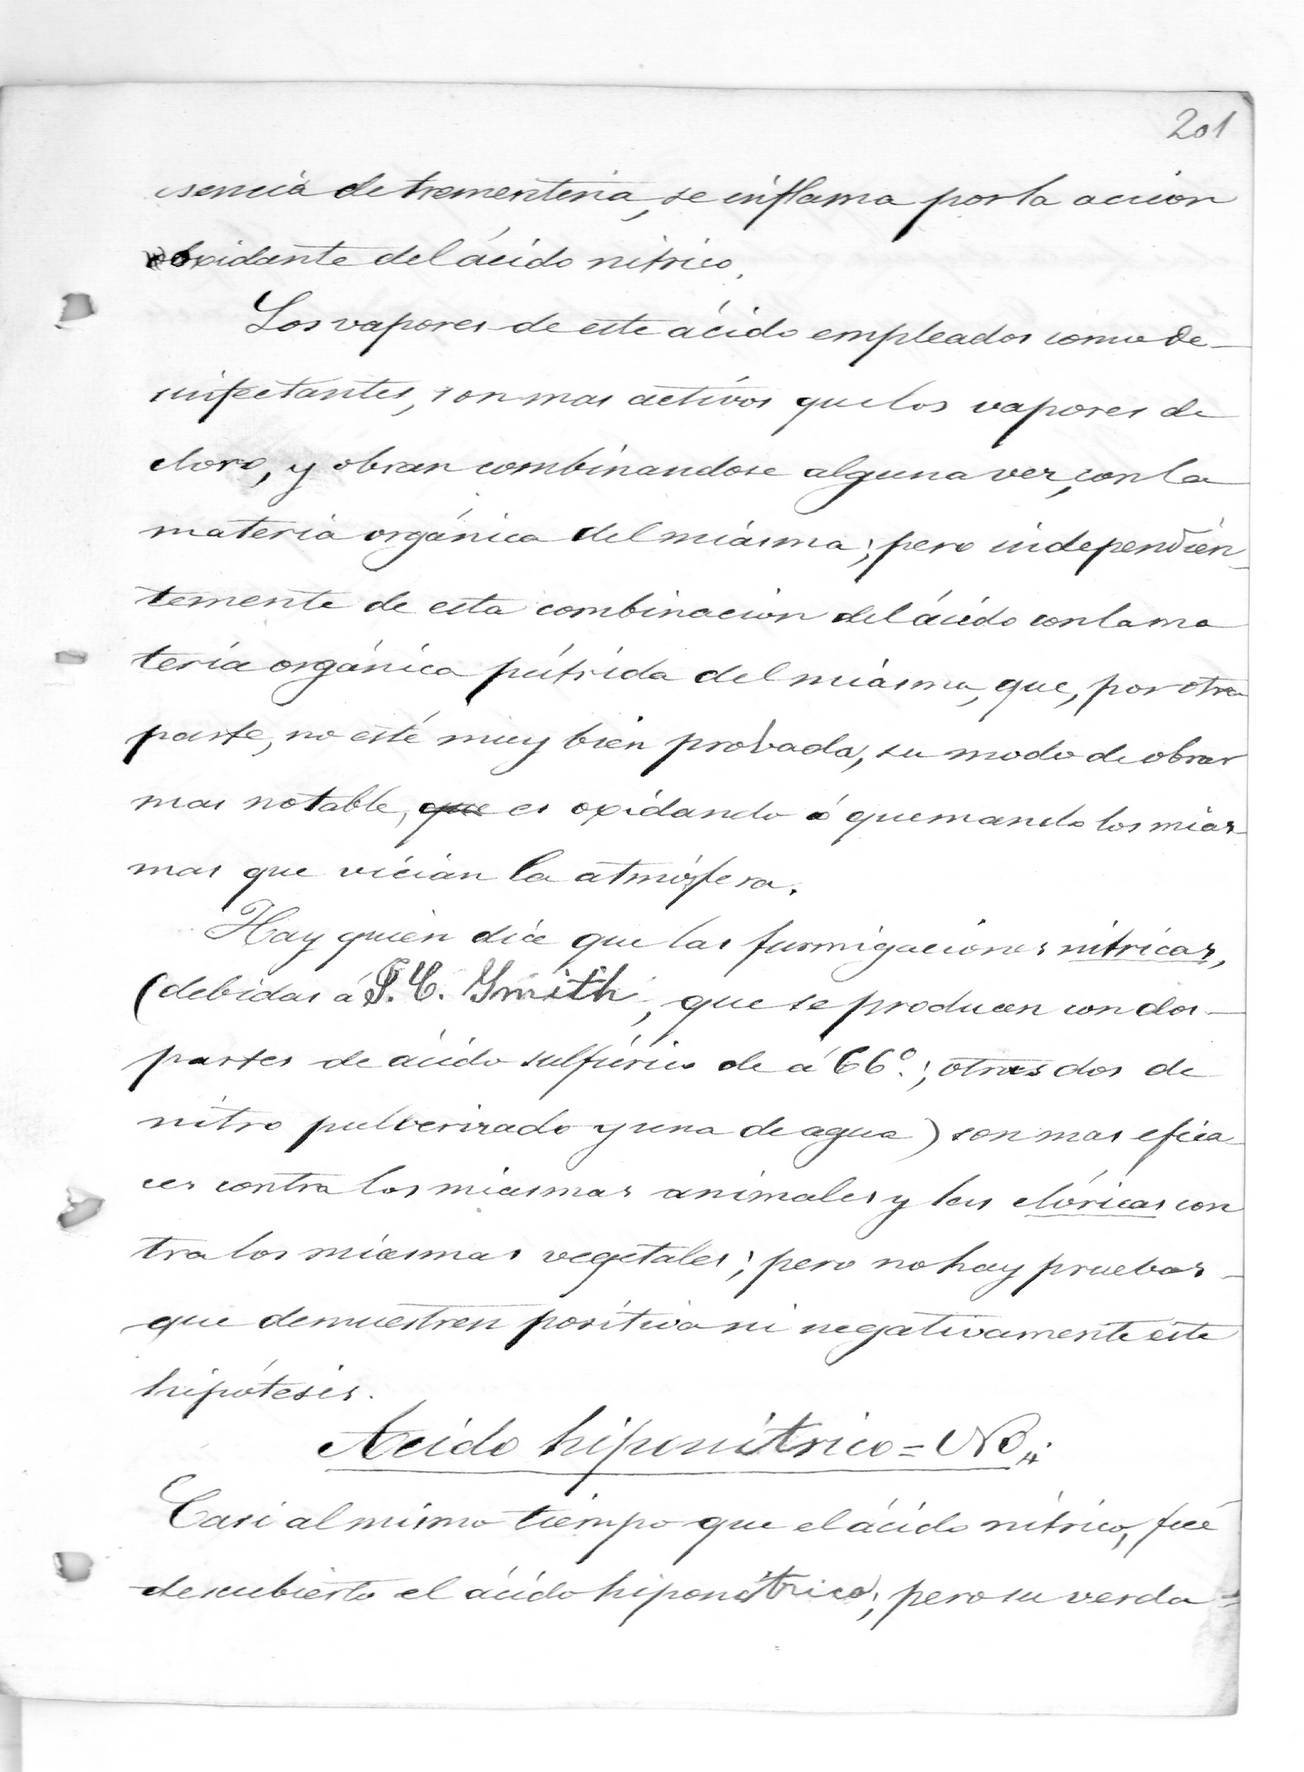 201
esencia de trementina, se inflama por la accion
oxidante del ácido nitrico.
Los vapores de este ácido empleados como de-
sinfectantes, son mas activos que los vapores de
cloro, y obran combinandose alguna vez, con la
materia orgánica del miásma; pero independien-
temente de esta combinacion del ácido con la ma
teria orgánica pútrida del miásma, que, por otra
parte, no esté muy bien probada, su modo de obrar
mas notable, que es oxidando ó quemando los mias-
mas que vician la atmósfera.
Hay quien dice que las fumigaciones nitricas,
(debidas á J. C. Smith, que se producen con dos-
partes de ácido sulfúrico de á 66°.; otras dos de
nitro pulverizado y una de agua) son mas efica
ces contra los miasmas animales y las clóricas con
tra los miasmas vegetales; pero no hay pruebas-
que demuestren positiva ni negativamente este
hipótesis.
Acido hiponitrico = NO4:
Casi al mismo tiempo que el ácido nitrico, fué
descubierto el ácido hiponitrico; pero su verda=